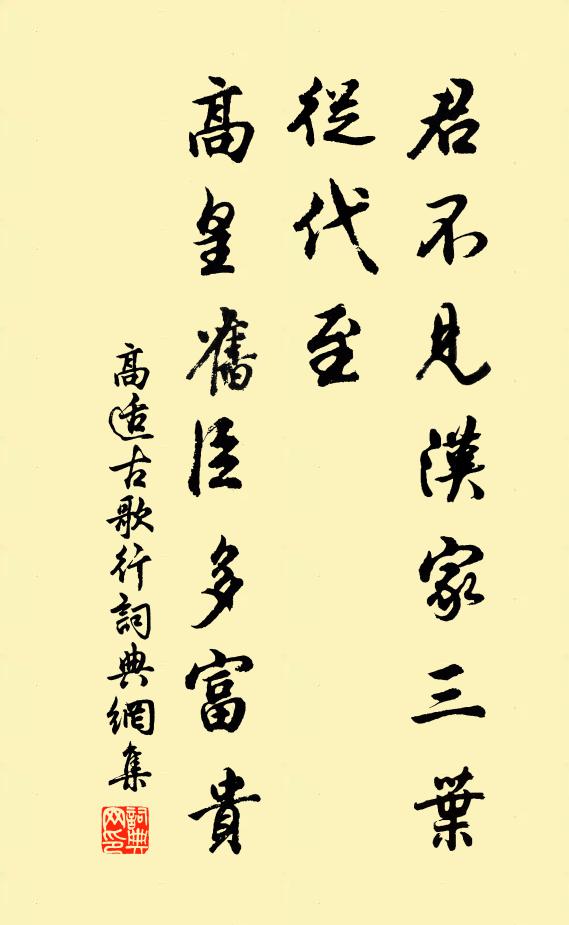 君不見漢家三葉
從代至
高皇舊臣多富貴
高適古歌行詞典網集
詞典网印